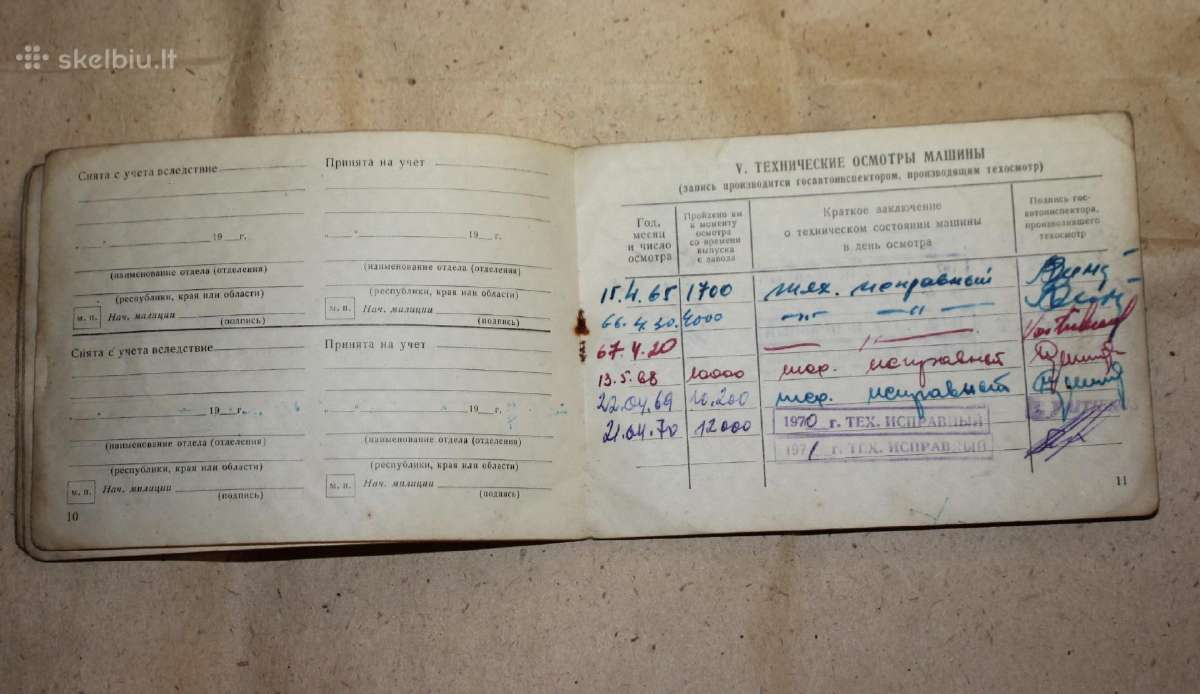 skelbiu.lt
Снята с учета вследствие
" " 19 г.
(наименование отдела (отделения)
(республики, края или области)
м. п. Нач. милиции
(подпись)
Принята на учет
" " 19 г.
(наименование отдела (отделения)
(республики, края или области)
м. п. Нач. милиции
(подпись)
Снята с учета вследствие
" " 19 г.
(наименование отдела (отделения)
(республики, края или области)
м. п. Нач. милиции
(подпись)
Принята на учет
" " 19 г.
(наименование отдела (отделения)
(республики, края или области)
м. п. Нач. милиции
(подпись)
10
V. ТЕХНИЧЕСКИЕ ОСМОТРЫ МАШИНЫ
(запись производится госавтоинспектором, производящим техосмотр)
Год, месяц и число осмотра
Пройдено км к моменту осмотра со времени выпуска с завода
Краткое заключение о техническом состоянии машины в день осмотра
Подпись гос-автоинспектора, производившего техосмотр
15.4.65 1700 тех. исправный
66.4.30. 4000 —"— —"—
67.4.20 — " —
13.5.68 10000 тех. исправнет
22.04.69 10.200 тех. исправныт
21.04.70 12000 1970 г. ТЕХ. ИСПРАВНЫЙ
1971 г. ТЕХ. ИСПРАВНЫЙ
11